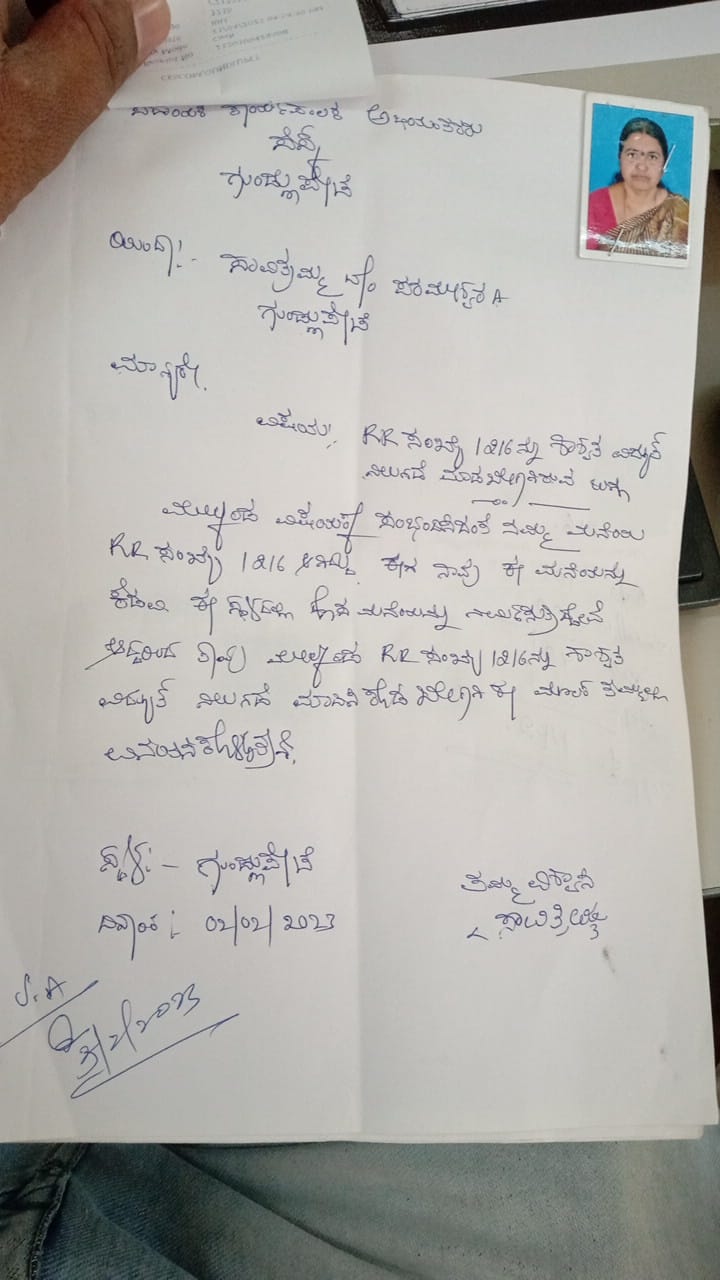 ಕಾರ್ಯಪಾಲಕ ಅಭಿಯಂತರರು
ಗುಂಡ್ಲುಪೇಟೆ
ಯಿಂದ:-
ಸಾವಿತ್ರಮ್ಮ ಪರಮೇಶ್ವರ A
ಗುಂಡ್ಲುಪೇಟೆ
ಮಾನ್ಯರೇ,
ವಿಷಯ: RR ಸಂಖ್ಯೆ 1216ನ್ನು ಶಾಶ್ವತ ವಿದ್ಯುತ್
ನಿಲುಗಡೆ ಮಾಡಬೇಕಾಗಿರುವ ಬಗ್ಗೆ
ಮೇಲ್ಕಂಡ ವಿಷಯಕ್ಕೆ ಸಂಭಂದಿಸಿದಂತೆ ನಮ್ಮ ಮನೆಯ
RR ಸಂಖ್ಯೆ 1216 ಆಗಿದ್ದು ಈಗ ನಾವು ಈ ಮನೆಯನ್ನು
ಕೆಡವಿ ಈ ಸ್ಥಳದಲ್ಲಿ ಹೊಸ ಮನೆಯನ್ನು ನಿರ್ಮಿಸುತ್ತಿದ್ದೇವೆ
ಆದ್ದರಿಂದ ತಾವು ಮೇಲ್ಕಂಡ RR ಸಂಖ್ಯೆ 1216ನ್ನು ಶಾಶ್ವತ
ವಿದ್ಯುತ್ ನಿಲುಗಡೆ ಮಾಡಿಸಿಕೊಡಬೇಕಾಗಿ ಈ ಮೂಲಕ ತಮ್ಮಲ್ಲಿ
ಸ್ಥಳ:- ಗುಂಡ್ಲುಪೇಟೆ
ತಮ್ಮ ವಿಶ್ವಾಸಿ
ದಿನಾಂಕ: 02/02/2023
S.A